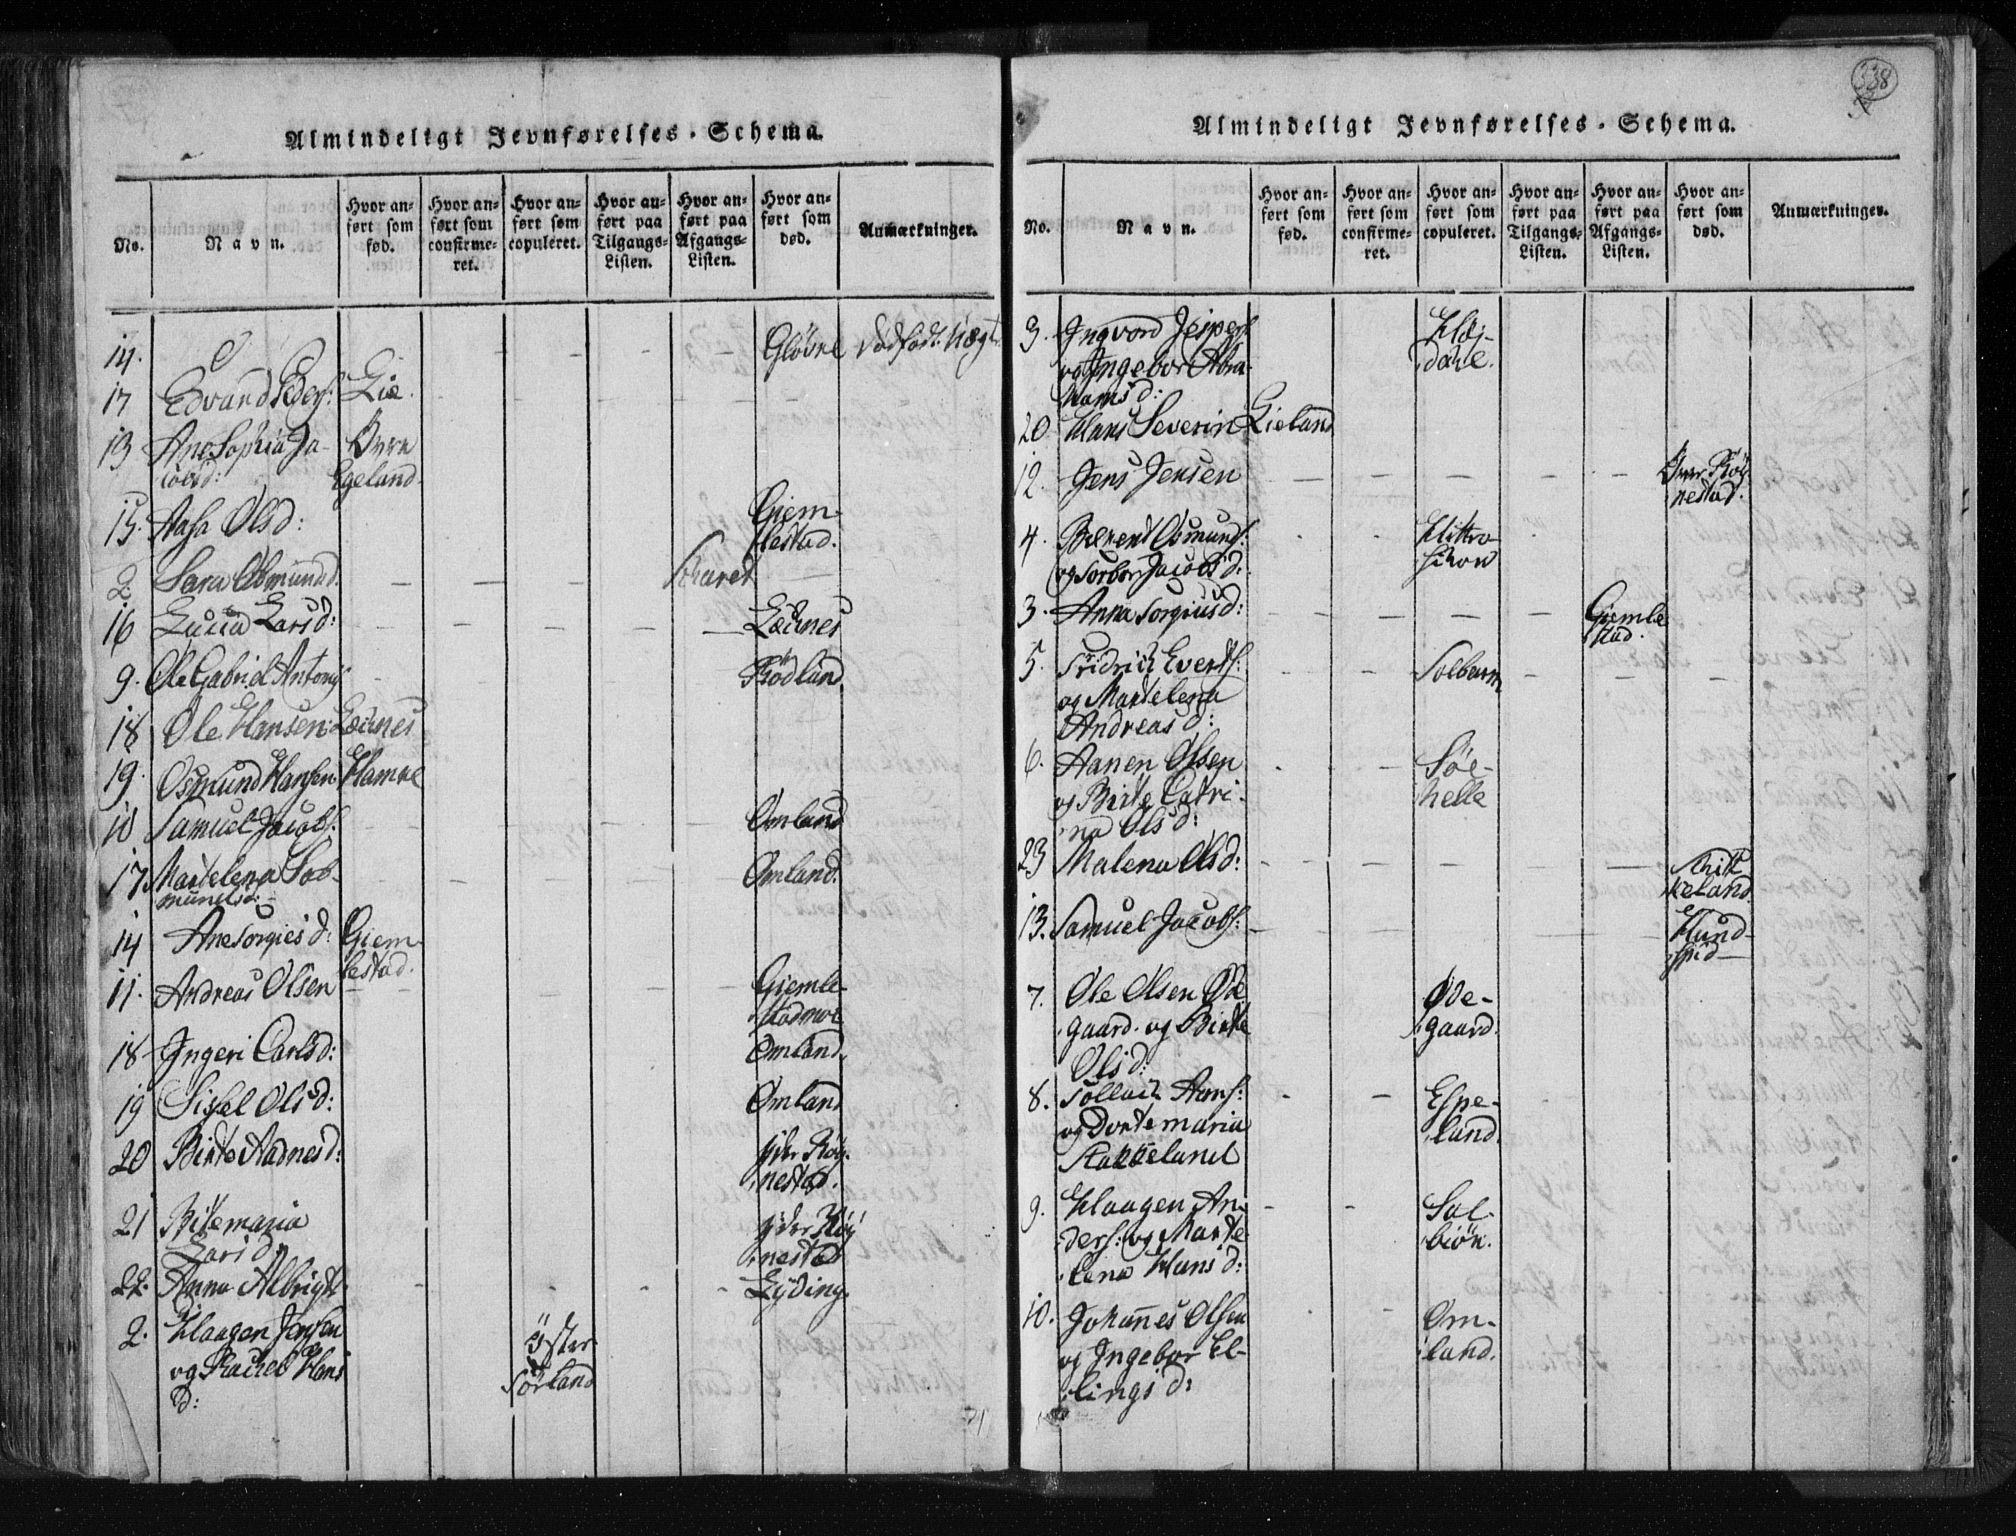 338
Almindeligt Jevnførelses-Schema.
No.
Navn.
Hvor an-
ført som
fød.
Hvor an-
ført som
confirme-
ret.
Hvor an-
ført som
copuleret.
Hvor an-
ført paa
Tilgangs-
Listen.
Hvor an-
ført paa
Afgangs-
Listen.
Hvor an-
ført som
død.
Anmærkninger.
14. Glöbre
17 Edvard Peders: Lie.
13 Ane Sophia Ja- Øvre
cobsd: Egeland.
15. Aasa Olsd: Giem-
lestad.
2. Sara Osmundsd.
16 Lucia Larsd: Lædnes
9. Ole Gabriel Antonis Rödland
18 Ole Hansen Lædnes
19. Osmund Hansen Hamre
10 Samuel Jacobs: Omland
17 Martelena Tob- Omland.
14 Ane Torgiesd: Giem-
lestad.
11. Andreas Olsen Giemle-
stadmoe
18 Ingeri Carlsd: Omland.
19 Sissel Olsd: Omland
20 Birte Aadnesd: Röy-
nestad.
21 Bitemaria Röy-
Larsd: nestad
22. Anna Albrigts Lyding.
2. Haagen Jensen Öster-
og Rachel Hans Sörland
d:
Almindeligt Jevnførelses-Schema.
No.
Navn.
Hvor an-
ført som
fød.
Hvor an-
ført som
confirme-
ret.
Hvor an-
ført som
copuleret.
Hvor an-
ført paa
Tilgangs-
Listen.
Hvor an-
ført paa
Afgangs-
Listen.
Hvor an-
ført som
død.
Anmærkninger.
3. Ingvord Jespers
og Ingebor Abra- dahl.
hamsd:
20 Hans Severin Lieland
12. Jens Jensen Øvre Röy-
nestad.
4. Bærent Osmunds:
og Torbor Jacobsd:
3. Anna Torgiusd: Giemle
stad.
5. Fridrich Everts: Solbærn
og Martelena
Andreasd:
6. Aanen Olsen Söe-
og Birte Catri- helle
na Olsd:
23 Malena Olsd:
keland.
13. Samuel Jacobs: Hund-
7. Ole Olsen Øde Øde-
gaard. og Birte gaard.
Olsd:
8. Tollach Aans: Espe-
og Dortemaria land.
Stakkeland
9. Haagen An- Sol-
ders: og Marte biör.
lena Hansd:
10. Johannes Olsen Om-
og Ingebor El- land.
lingsd: